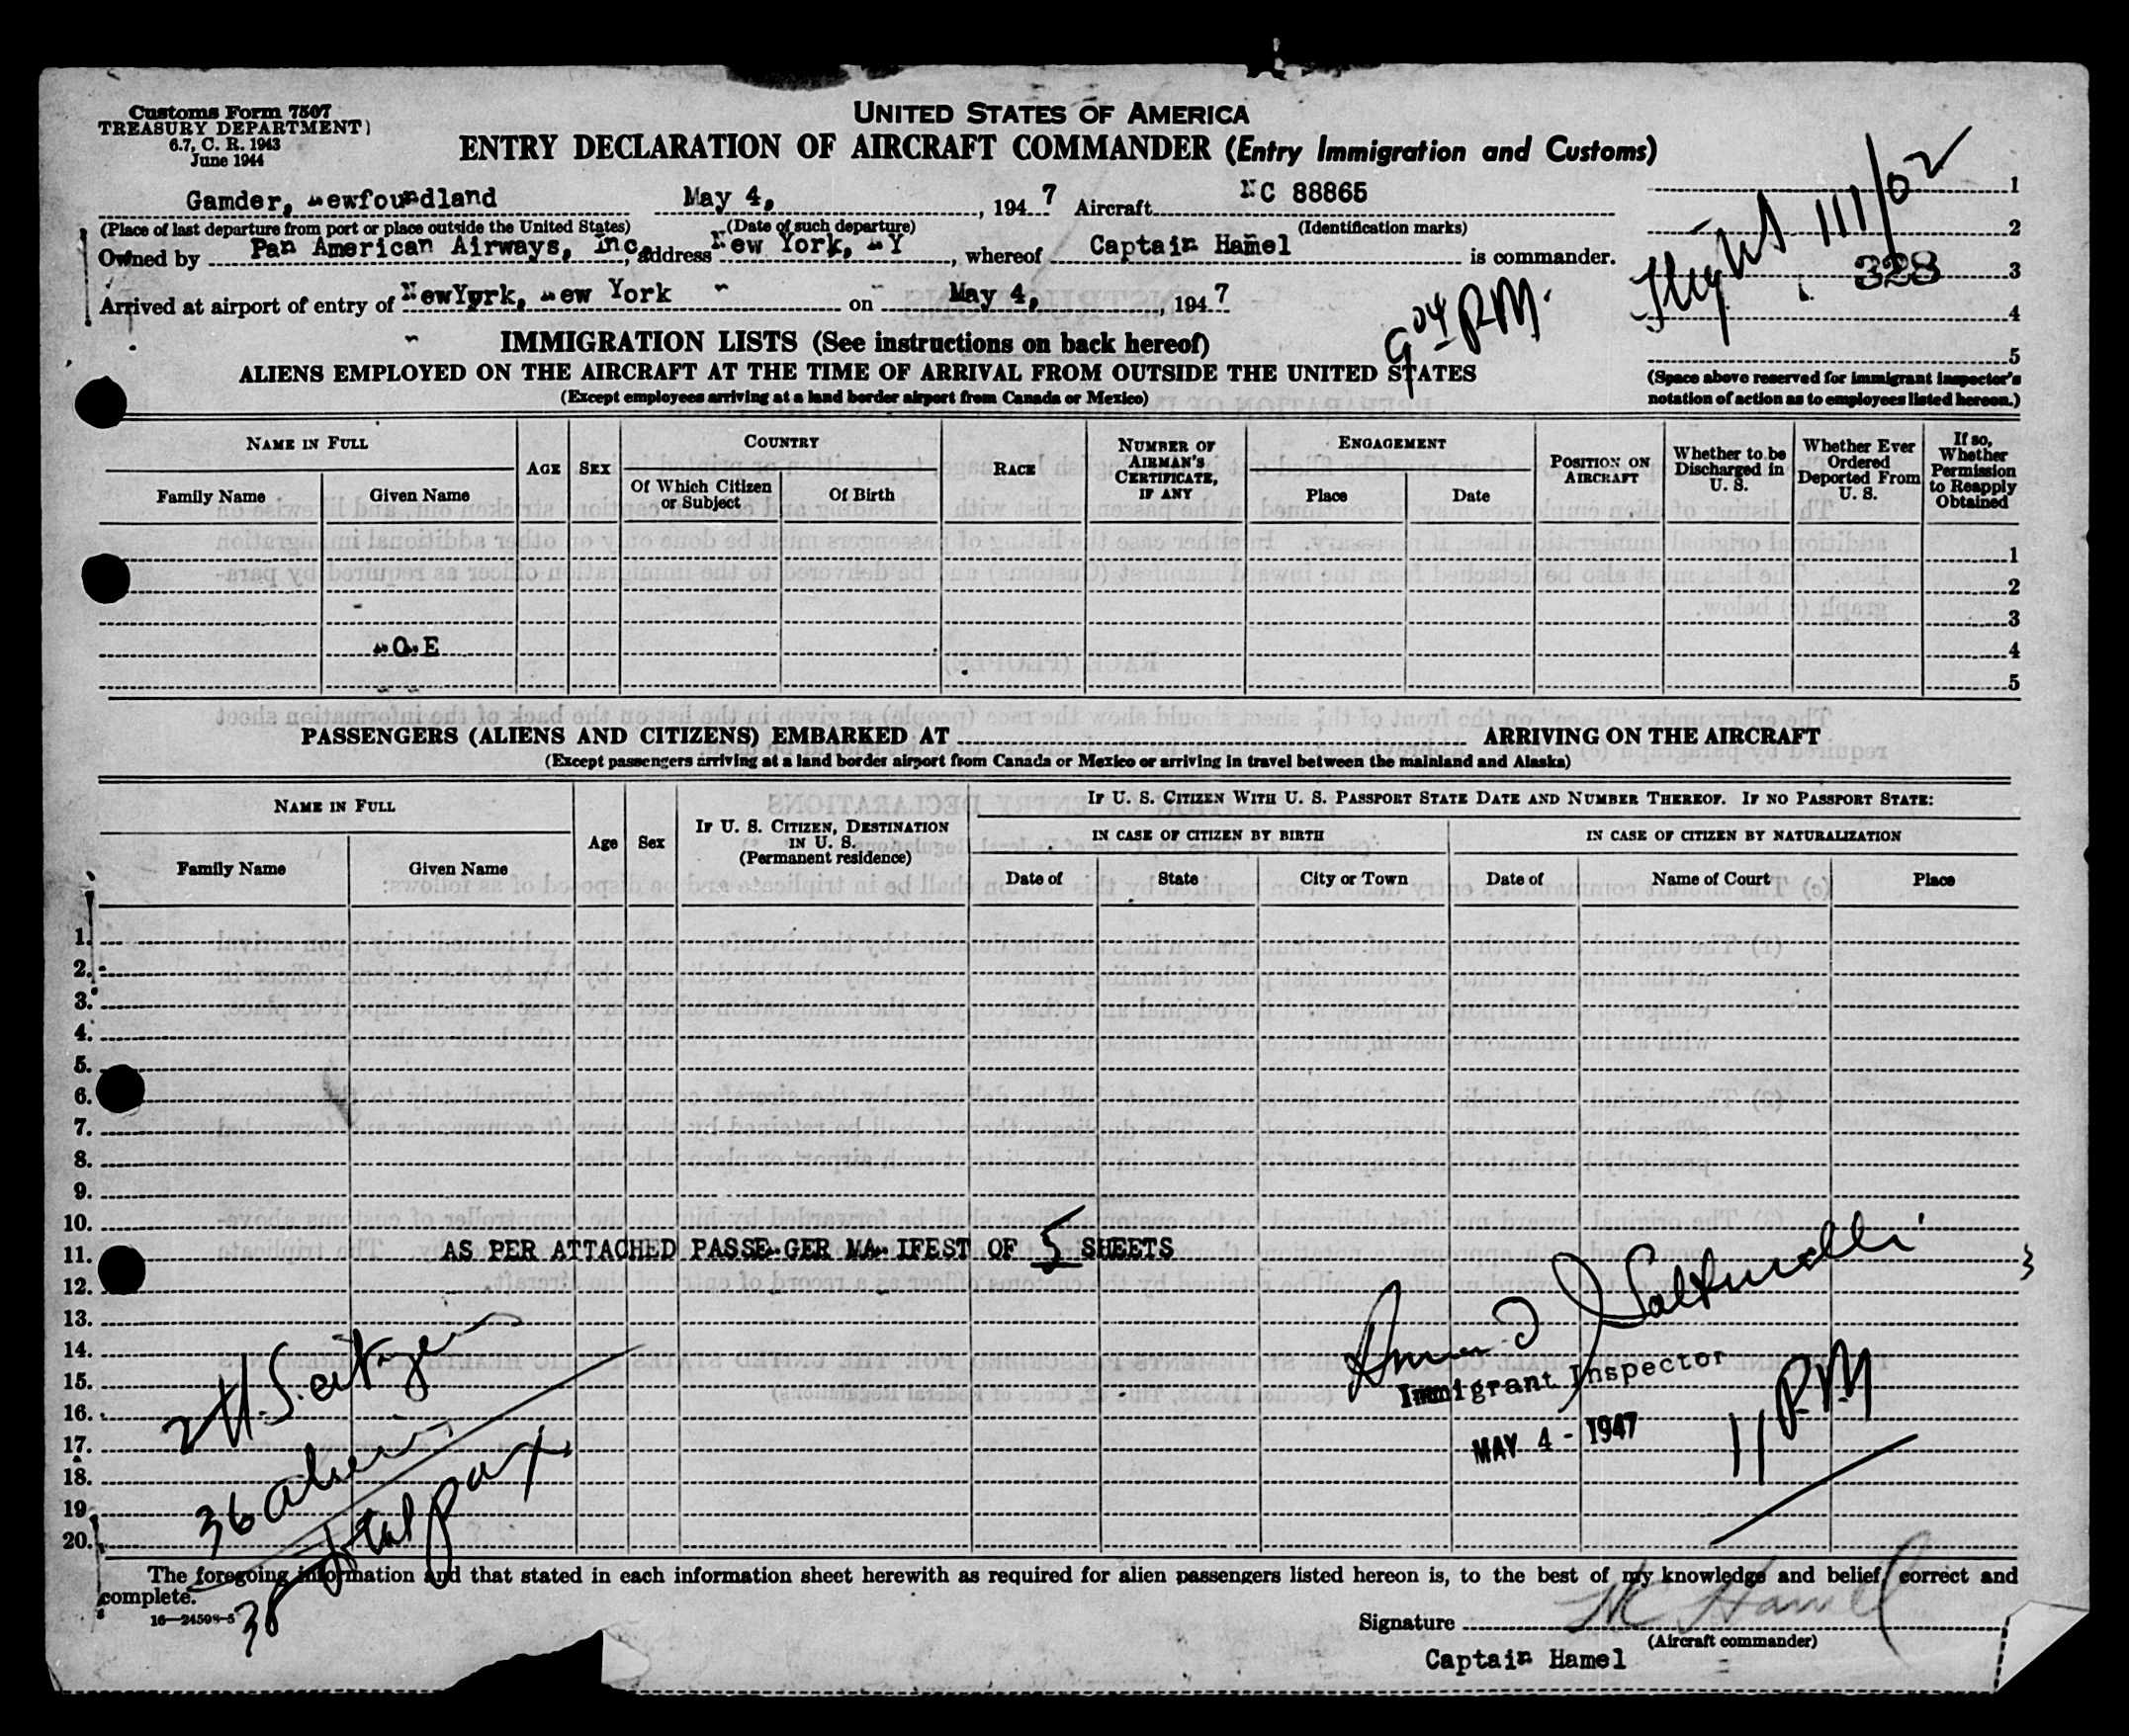 Customs Form 7507
TREASURY DEPARTMENT)
6.7, C. R. 1943
June 1944
UNITED STATES OF AMERICA
ENTRY DECLARATION OF AIRCRAFT COMMANDER (Entry Immigration and Customs)
Gamder, Newfoundland May 4, , 1947 Aircraft NC 88865
(Place of last departure from port or place outside the United States) (Date of such departure) (Identification marks)
Owned by Pan American Airways, Inc, address New York, NY, whereof Captain Hamel is commander.
Arrived at airport of entry of NewYprk, New York on May 4, , 1947
Flight 111/02
328
9 04 P.M.
1
2
3
4
5
(Space above reserved for immigrant inspector's
notation of action as to employees listed hereon.)
IMMIGRATION LISTS (See instructions on back hereof)
ALIENS EMPLOYED ON THE AIRCRAFT AT THE TIME OF ARRIVAL FROM OUTSIDE THE UNITED STATES
(Except employees arriving at a land border airport from Canada or Mexico)
NAME IN FULL
Family Name Given Name
AGE SEX
COUNTRY
Of Which Citizen or Subject
Of Birth
RACE
NUMBER OF AIRMAN'S CERTIFICATE, IF ANY
ENGAGEMENT
Place Date
POSITION ON AIRCRAFT
Whether to be Discharged in U. S.
Whether Ever Ordered Deported From U. S.
If so, Whether Permission to Reapply Obtained
1
2
3
NONE 4
5
PASSENGERS (ALIENS AND CITIZENS) EMBARKED AT ARRIVING ON THE AIRCRAFT
(Except passengers arriving at a land border airport from Canada or Mexico or arriving in travel between the mainland and Alaska)
NAME IN FULL
Family Name Given Name
Age Sex
IF U. S. CITIZEN, DESTINATION IN U. S.
(Permanent residence)
IF U. S. CITIZEN WITH U. S. PASSPORT STATE DATE AND NUMBER THEREOF. IF NO PASSPORT STATE:
IN CASE OF CITIZEN BY BIRTH IN CASE OF CITIZEN BY NATURALIZATION
Date of State City or Town Date of Name of Court Place
1.
2.
3.
4.
5.
6.
7.
8.
9.
10.
11. AS PER ATTACHED PASSENGER MANIFEST OF 5 SHEETS
12.
13.
14.
15.
16.
17.
18.
19.
20.
2 U.S. citizens
36 aliens
38 total pax
Immigrant Inspector
MAY 4 - 1947
11 P.M
The foregoing information and that stated in each information sheet herewith as required for alien passengers listed hereon is, to the best of my knowledge and belief, correct and
complete.
16—24508-5
Signature Hamel
(Aircraft commander)
Captain Hamel